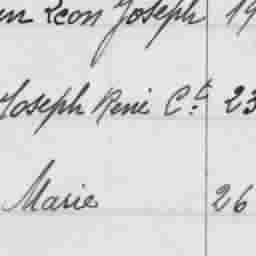 Leon Joseph 19
Joseph René Ct. 23
Marie 26